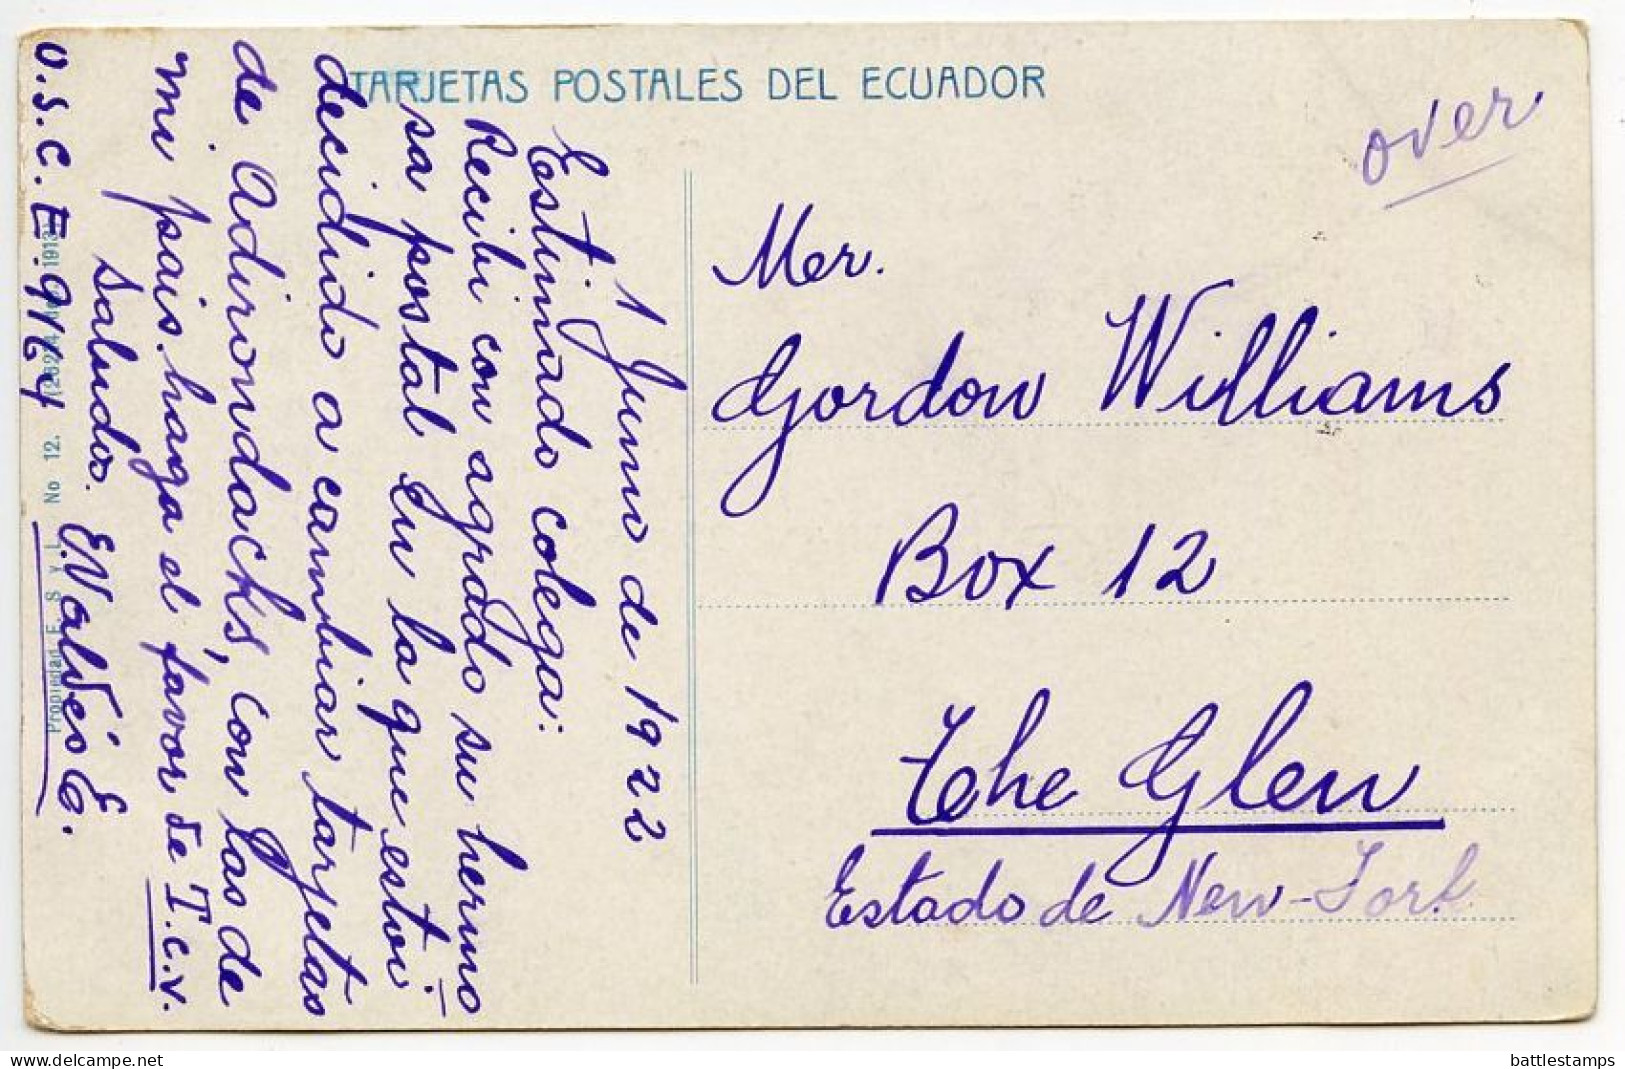 TARJETAS POSTALES DEL ECUADOR
over
1 Junio de 1922
Estimado colega:
Recibi con agrado su hermo-
sa postal en la que estoi
decidido a cambiar tarjetas
de Adirondacks, con las de
mi pais. haga el favor de T.c.v.
Saludos. E. Valdés C.
U.S.C.E.
Mer.
Gordon Williams
Box 12
The Glen
Estado de New-York
Propiedad E. S. y L. No 12.
delcampe.net
battlestamps